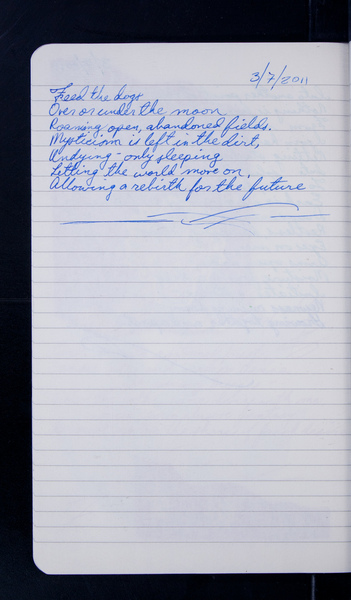 3/7/2011
Feed the dogs
Over or under the moon
Roaming open, abandoned fields.
Mysticism is left in the dirt,
Undying - only sleeping
Letting the world move on,
Allowing a rebirth for the future